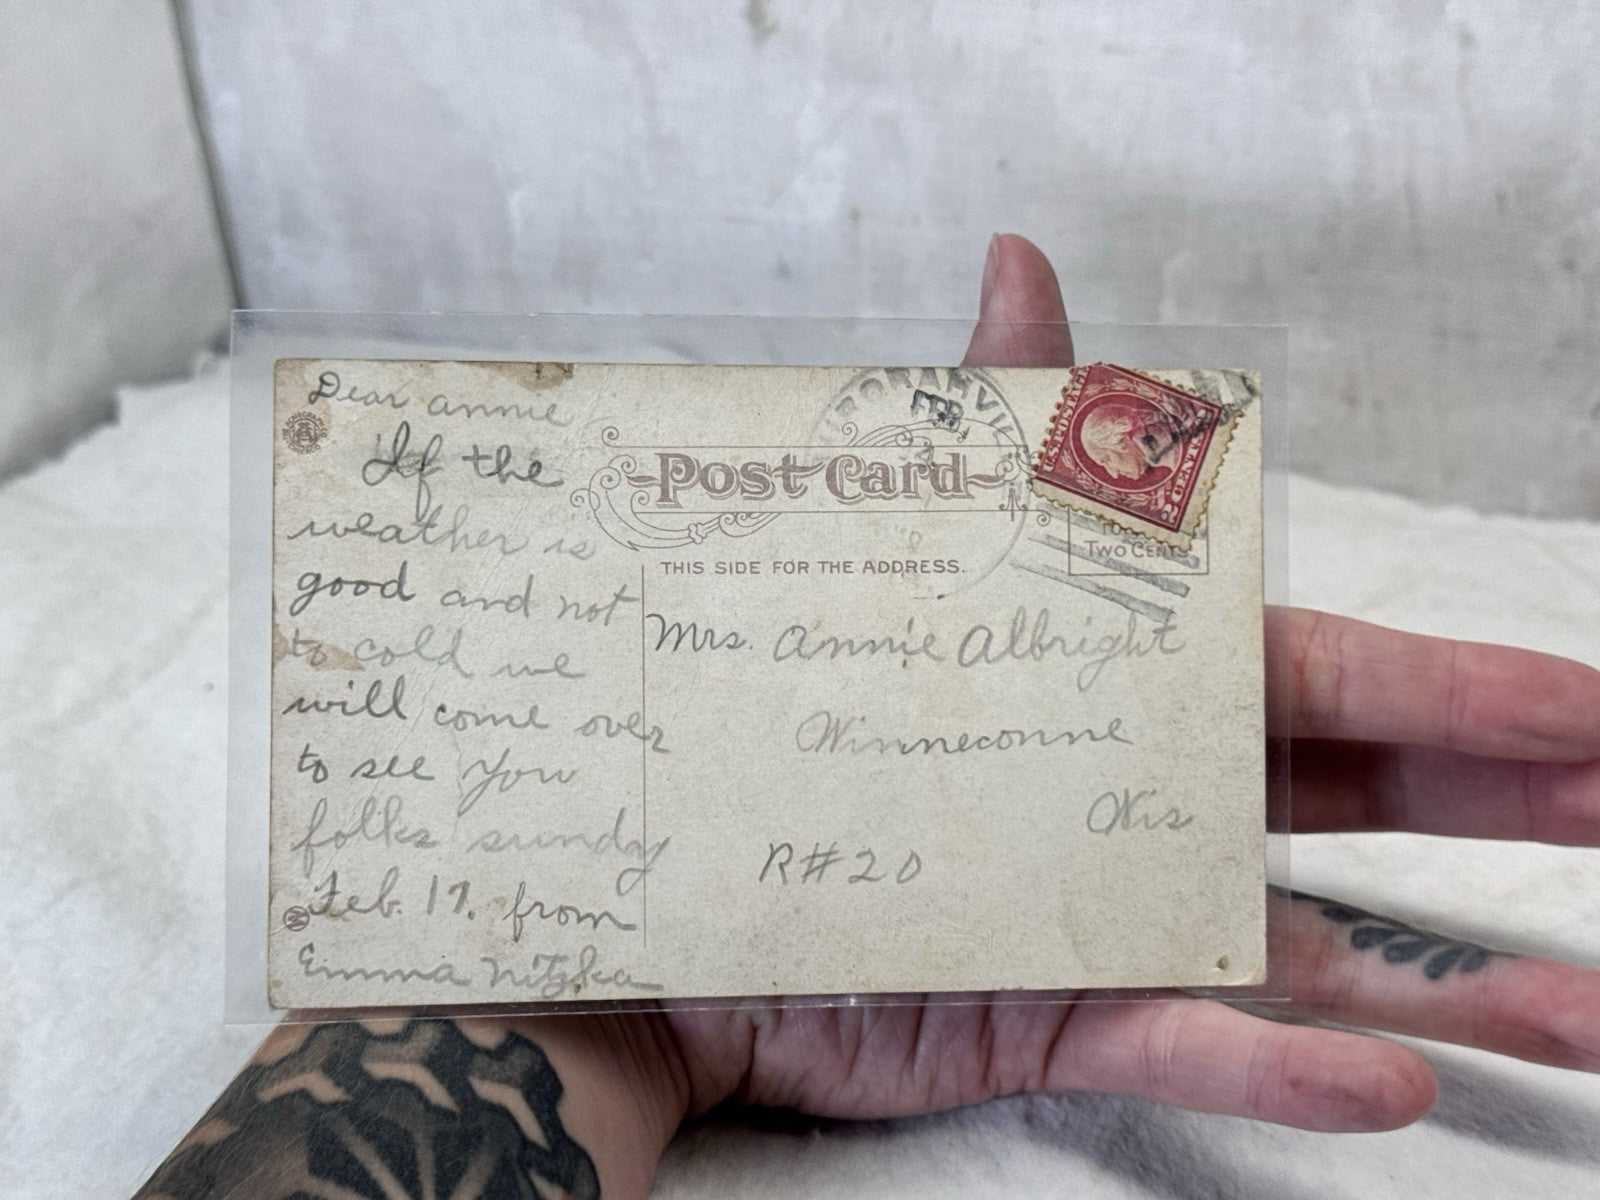 Dear annie
If the
weather is
good and not
to cold we
will come over
to see you
folks sunday
Feb. 17. from
Emma Nitzka
Post Card
THIS SIDE FOR THE ADDRESS.
FEB
U.S. POSTAGE
2 CENTS
TWO CENTS
Mrs. Annie Albright
Winneconne
Wis
R#20